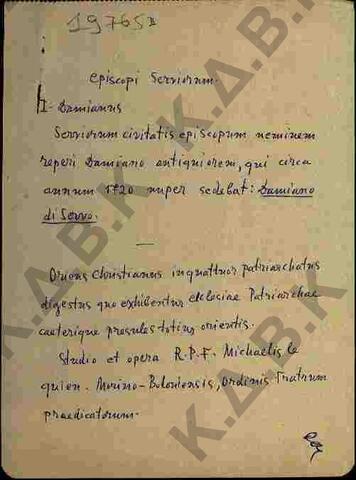 19765
episcopi Serviorum.
I- Damianus
Serviorum civitatis episcopum neminem
reperi Damiano antiquiorem, qui circa
annum 1720 nuper sedebat: Damiano
di Servo.
Oriens christianus in quattuor patriarchatus
digestus quo exhibentur eclesiae Patriarchae
caeterique presules totius orientis.
Studio et opera R.P.F. Michaelis le
quien. Morino-Boloniensis, Ordinis Fratrum
praedicatorum.
Κ.Δ.Β.Κ
Κ.Δ.Β.Κ
Κ.Δ.Β.Κ